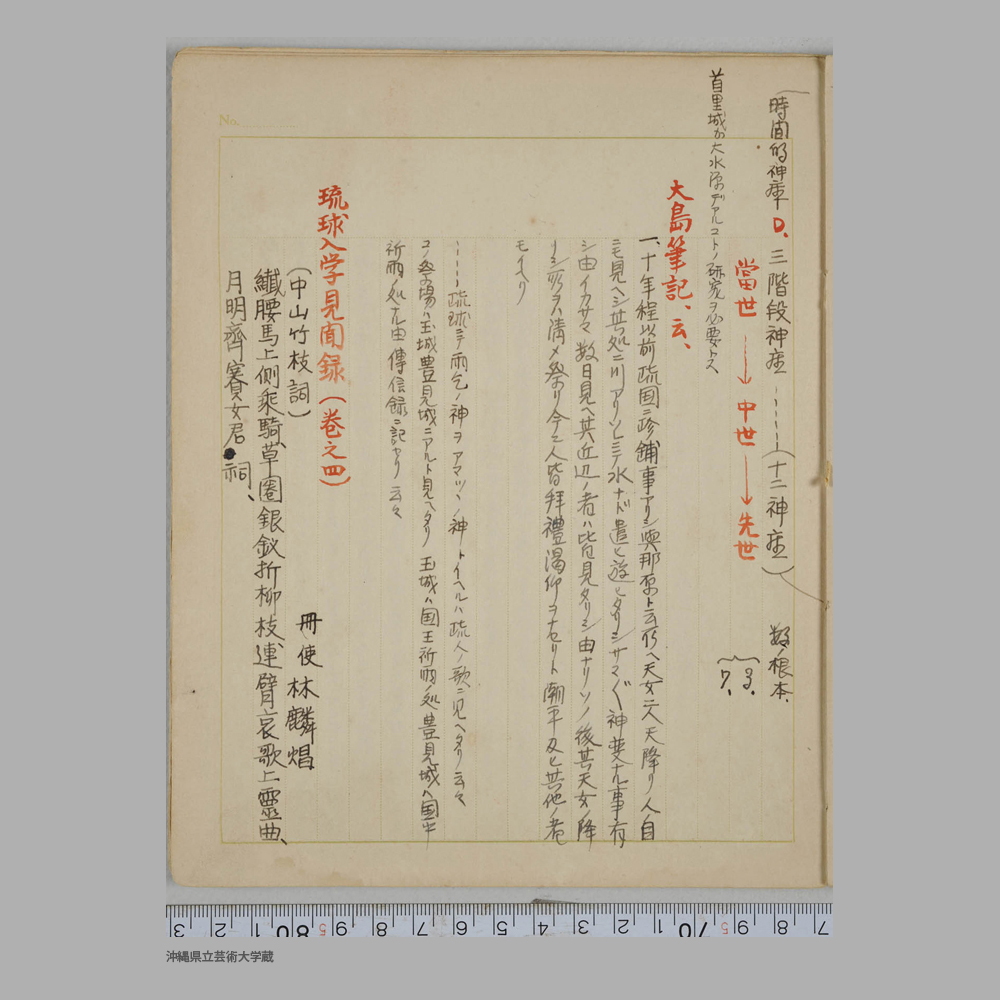 時間的神座 D、三階段神座……(十二神座)
数ノ根本、
3、
7、
當世→中世→先世
首里城ガ大水源デアルコトノ研究ヲ必要トス
大島筆記、云、
一、十年程以前琉国ニ珍鋪事アリシ與那原ト云所ヘ天女二人天降リ人自
ニモ見ヘシ其処ニ川アリソレニテ水ナド遣ヒ遊ヒタリシサマ〴〵神変ナル事有
シ由イカサマ数日見ヘ其近辺ノ者ハ皆見タリシ由ナリソノ後其天女ノ降
リシ所ヲハ清メ祭リ今ニ人皆拝禮渇仰ヲナセリト潮平及ヒ其他ノ者
モイヘリ
……琉球ニテ雨乞ノ神ヲアマツヽノ神トイヘルハ琉人ノ歌ニ見ヘタリ云々
コノ祭場ハ玉城豊見城ニアルト見ヘタリ 玉城ハ国王祈雨ノ処豊見城ハ国中
祈雨ノ処ナル由傳信録ニ記セリ 云々
琉球入学見聞録(巻之四)
(中山竹枝詞) 冊使 林麟焻
纎腰馬上側乘騎草圏銀釵折柳枝連臂哀歌上靈曲、
月明齊賽女君祠、
No.
7 8 9 70 1 2 3 4 5 6 7 8 9 80 1 2 3
沖縄県立芸術大学蔵